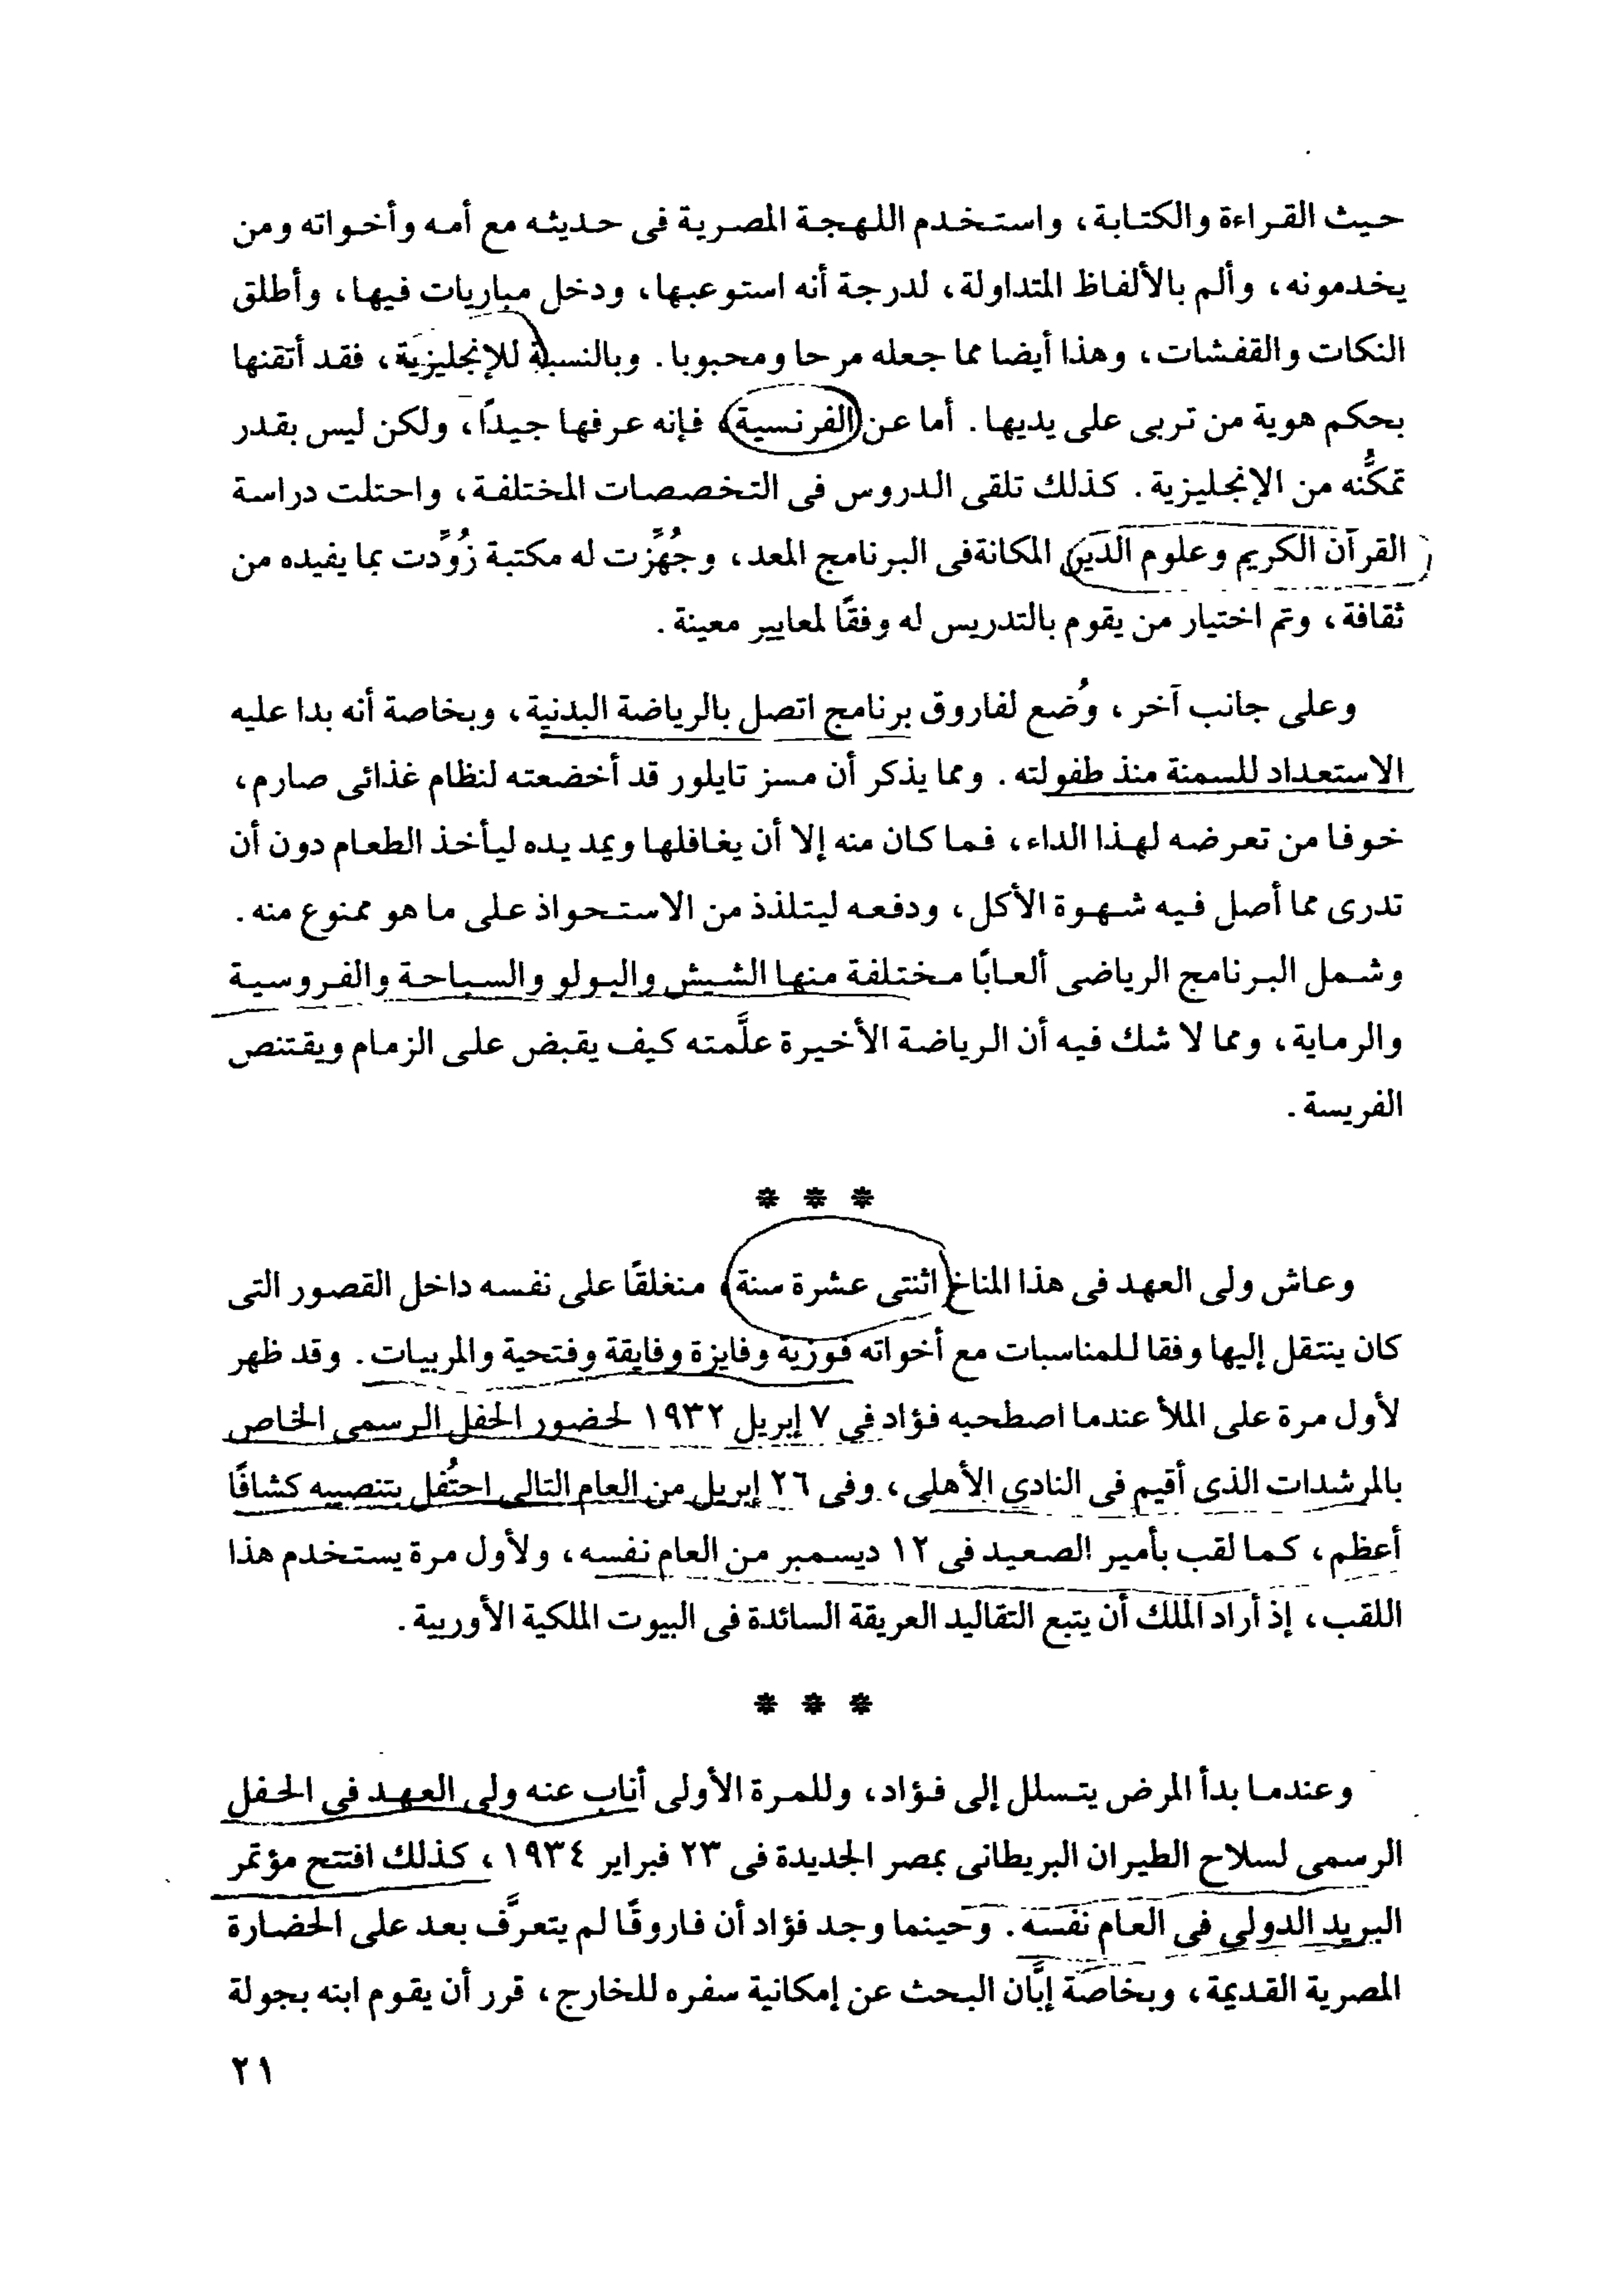 حيث القراءة والكتابة، واستخدم اللهجة المصرية فى حديثه مع أمه وأخواته ومن
يخدمونه، وألم بالألفاظ المتداولة، لدرجة أنه استوعبها، ودخل مباريات فيها، وأطلق
النكات والقفشات، وهذا أيضا مما جعله مرحا ومحبوبا. وبالنسبة للإنجليزية، فقد أتقنها
بحكم هوية من تربى على يديها. أما عن الفرنسية، فإنه عرفها جيداً، ولكن ليس بقدر
تمكنُّه من الإنجليزية. كذلك تلقى الدروس فى التخصصات المختلفة، واحتلت دراسة
القرآن الكريم وعلوم الدين المكانةفى البرنامج المعد، وجُهِّزت له مكتبة زُوِّدت بما يفيده من
ثقافة، وتم اختيار من يقوم بالتدريس له وفقًا لمعايير معينة.
وعلى جانب آخر، وُضع لفاروق برنامج اتصل بالرياضة البدنية، وبخاصة أنه بدا عليه
الاستعداد للسمنة منذ طفولته. ومما يذكر أن مسز تايلور قد أخضعته لنظام غذائى صارم،
خوفا من تعرضه لهذا الداء، فما كان منه إلا أن يغافلها ويمد يده ليأخذ الطعام دون أن
تدرى مما أصل فيه شهوة الأكل، ودفعه ليتلذذ من الاستحواذ على ما هو ممنوع منه.
وشمل البرنامج الرياضى ألعابًا مختلفة منها الشيش والبولو والسباحة والفروسية
والرماية، ومما لا شك فيه أن الرياضة الأخيرة علَّمته كيف يقبض على الزمام ويقتنص
الفريسة.
* * *
وعاش ولى العهد فى هذا المناخ اثنتى عشرة سنة، منغلقًا على نفسه داخل القصور التى
كان ينتقل إليها وفقا للمناسبات مع أخواته فوزية وفايزة وفايقة وفتحية والمربيات. وقد ظهر
لأول مرة على الملأ عندما اصطحبه فؤاد فى ٧ إبريل ١٩٣٢ لحضور الحفل الرسمى الخاص
بالمرشدات الذى أقيم فى النادى الأهلى، وفى ٢٦ إبريل من العام التالى احتُفل بتنصيبه كشافًا
أعظم، كما لقب بأمير الصعيد فى ١٢ ديسمبر من العام نفسه، ولأول مرة يستخدم هذا
اللقب، إذ أراد الملك أن يتبع التقاليد العريقة السائدة فى البيوت الملكية الأوربية.
* * *
وعندما بدأ المرض يتسلل إلى فؤاد، وللمرة الأولى أناب عنه ولى العهد فى الحفل
الرسمى لسلاح الطيران البريطانى بمصر الجديدة فى ٢٣ فبراير ١٩٣٤، كذلك افتتح مؤتمر
البريد الدولى فى العام نفسه. وحينما وجد فؤاد أن فاروقًا لم يتعرَّف بعد على الحضارة
المصرية القديمة، وبخاصة إبَّان البحث عن إمكانية سفره للخارج، قرر أن يقوم ابنه بجولة
٢١